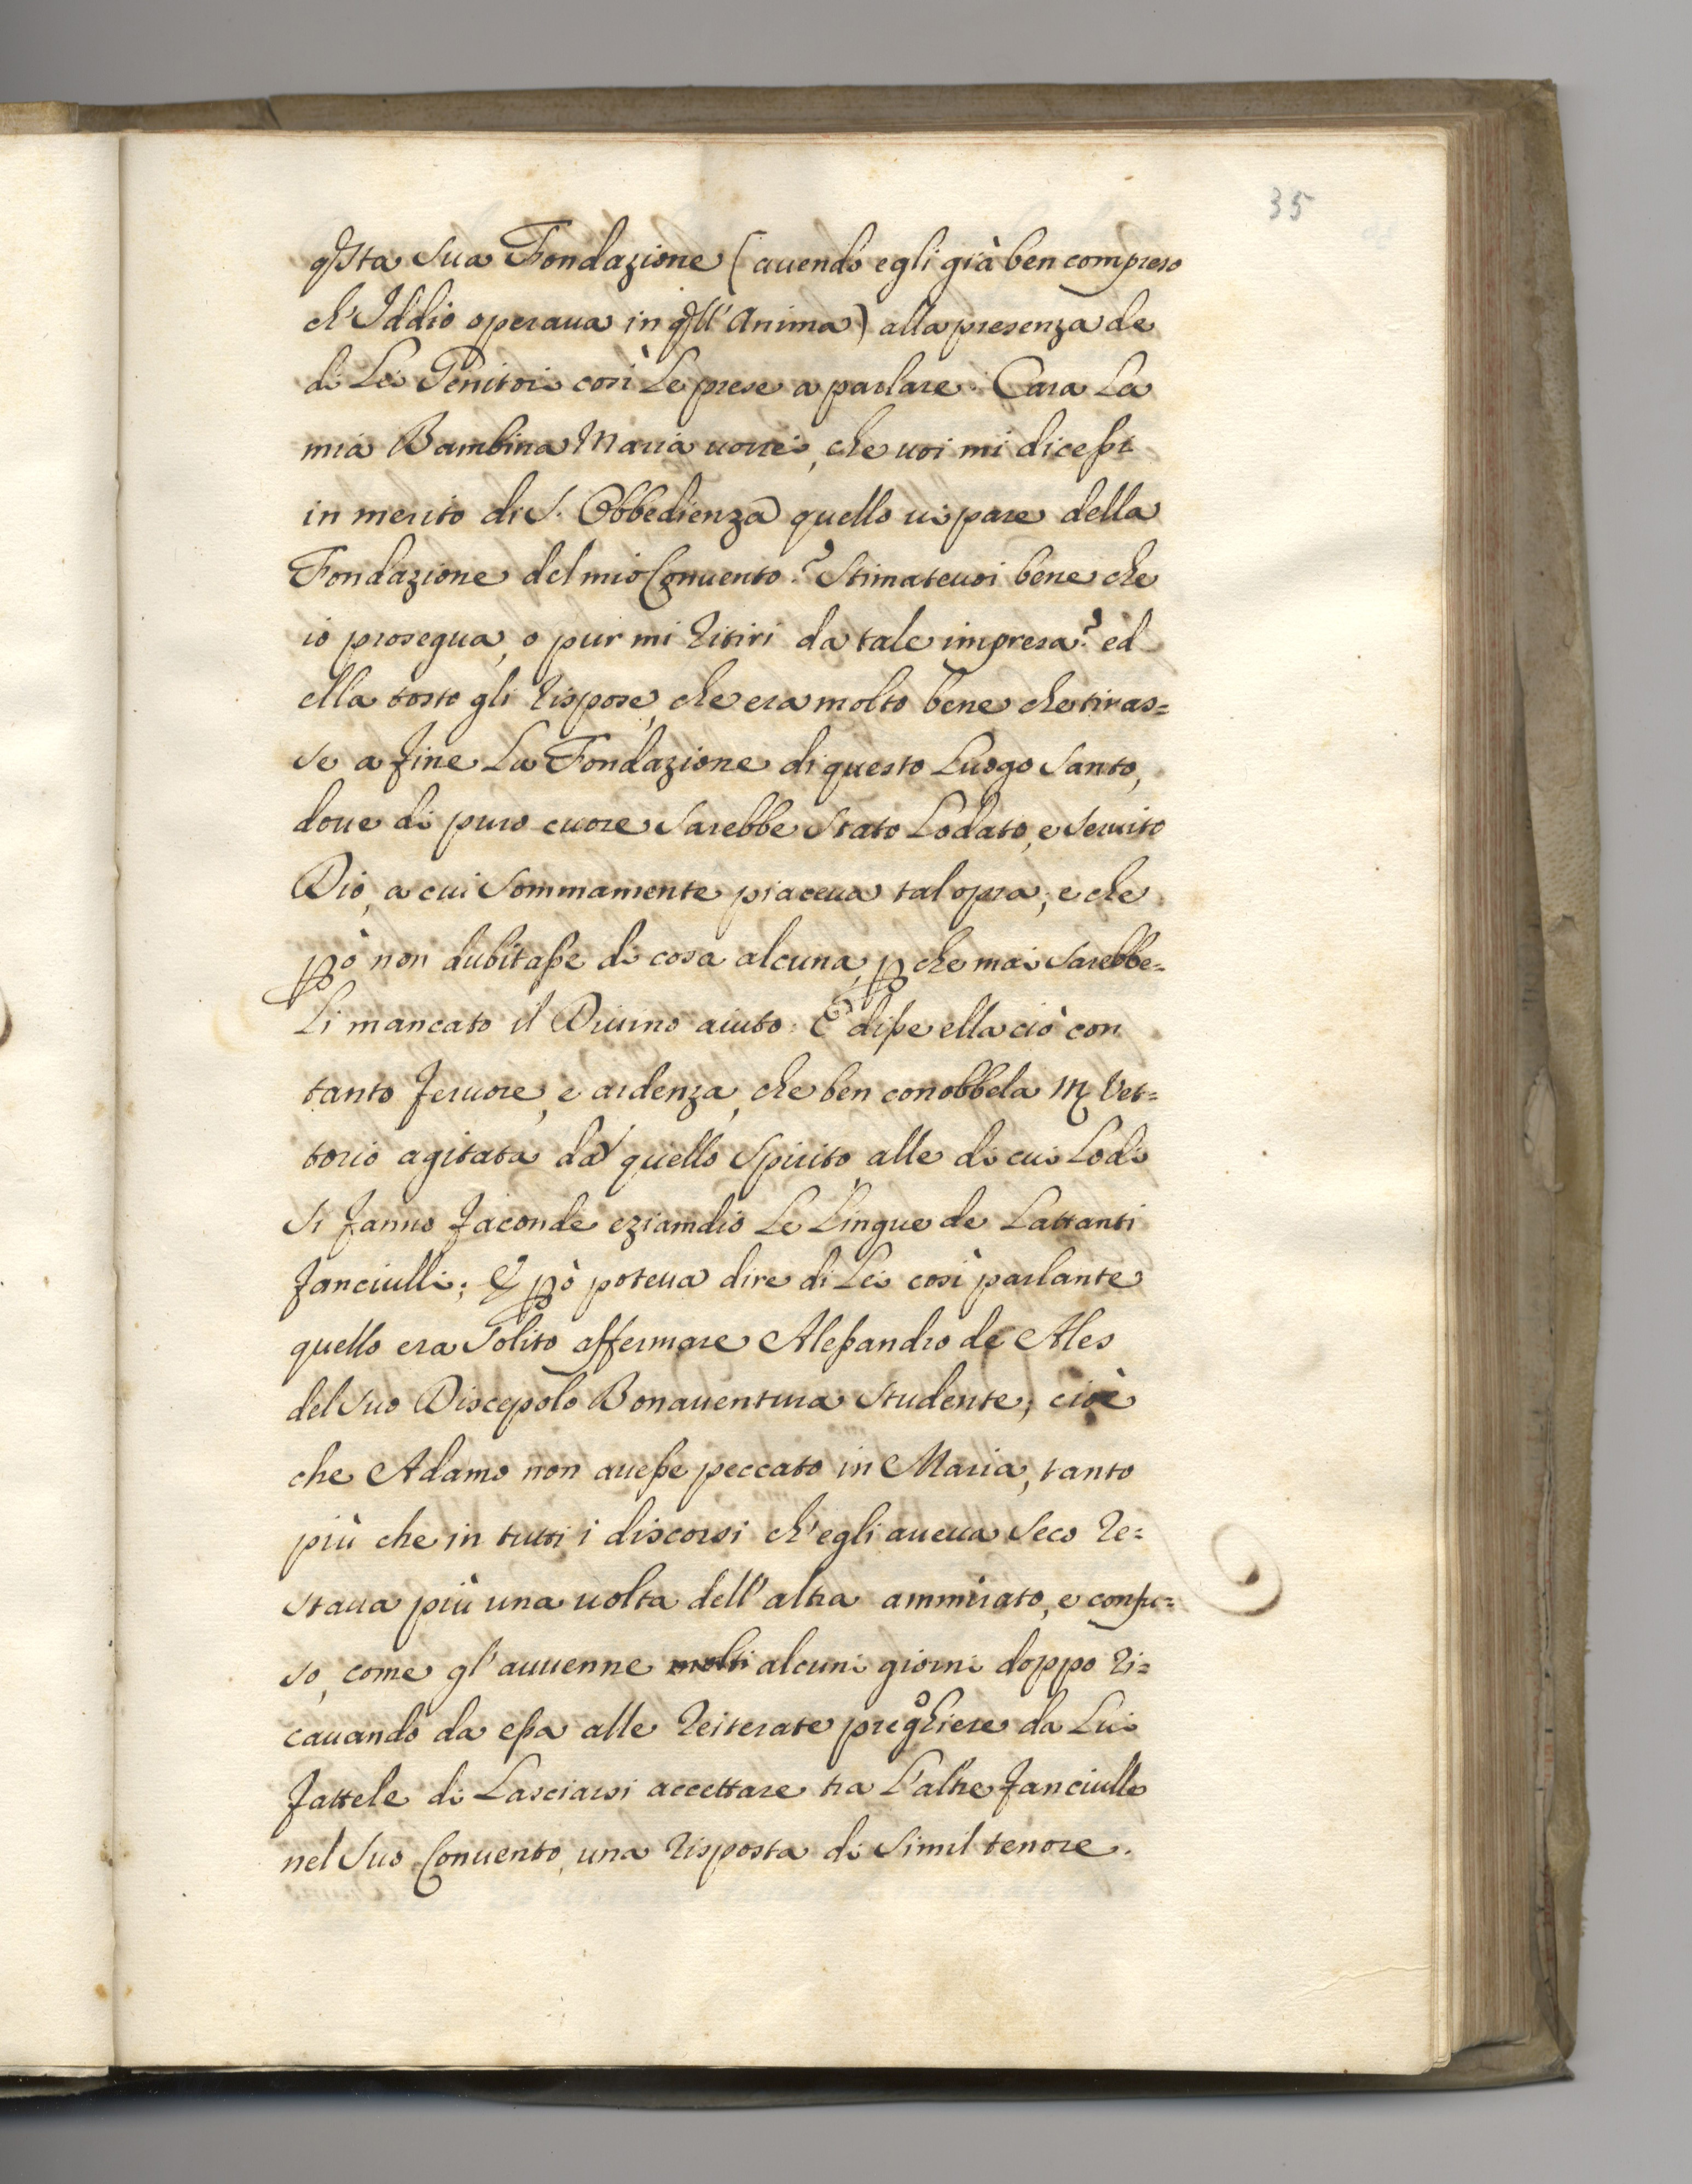 35
qsta sua Fondazione (auendo egli già ben compreso
ch'Iddio operaua in qll'Anima) alla presenza de
di Lei Genitori così Le prese a parlare. Cara La
mia Bambina Maria vorrei, che voi mi diceßi
in merito di S. Obbedienza quello ui pare della
Fondazione del mio Conuento? Stimateuoi bene che
io prosegua, o pur mi ritiri da tale impresa? ed
ella tosto gli rispose, che era molto bene che tiras=
se a fine La Fondazione di questo Luogo Santo,
doue di puro cuore sarebbe stato Lodato, e seruito
Dio, a cui sommamente piaceua tal opra; e che
pò non dubitaße di cosa alcuna, p che mai sarebbe=
Li mancato il Diuino aiuto. E diße ella ciò con
tanto feruore, e ardenza, che ben conobbela M Vet=
torio agitata da quello Spirito, alle di cui Lodi
si fanno faconde eziamdio Le Lingue de Lattanti
fanciulli; E pò poteua dire di Lei così parlante
quello era solito affermare Aleßandro de Ales
del suo Discepolo Bonauentura studente; cioè
che Adamo non aueße peccato in Maria, tanto
più che in tutti i discorsi ch'egli aueua seco re=
staua più una uolta dell'altra ammirato, e confu=
so, come gl'auuenne molti alcuni giorni doppo ri=
cauando da eßa alle reiterate preghiere da Lui
fattele di Lasciarsi accettare tra L'altre fanciulle
nel suo Conuento, una risposta di simil tenore.